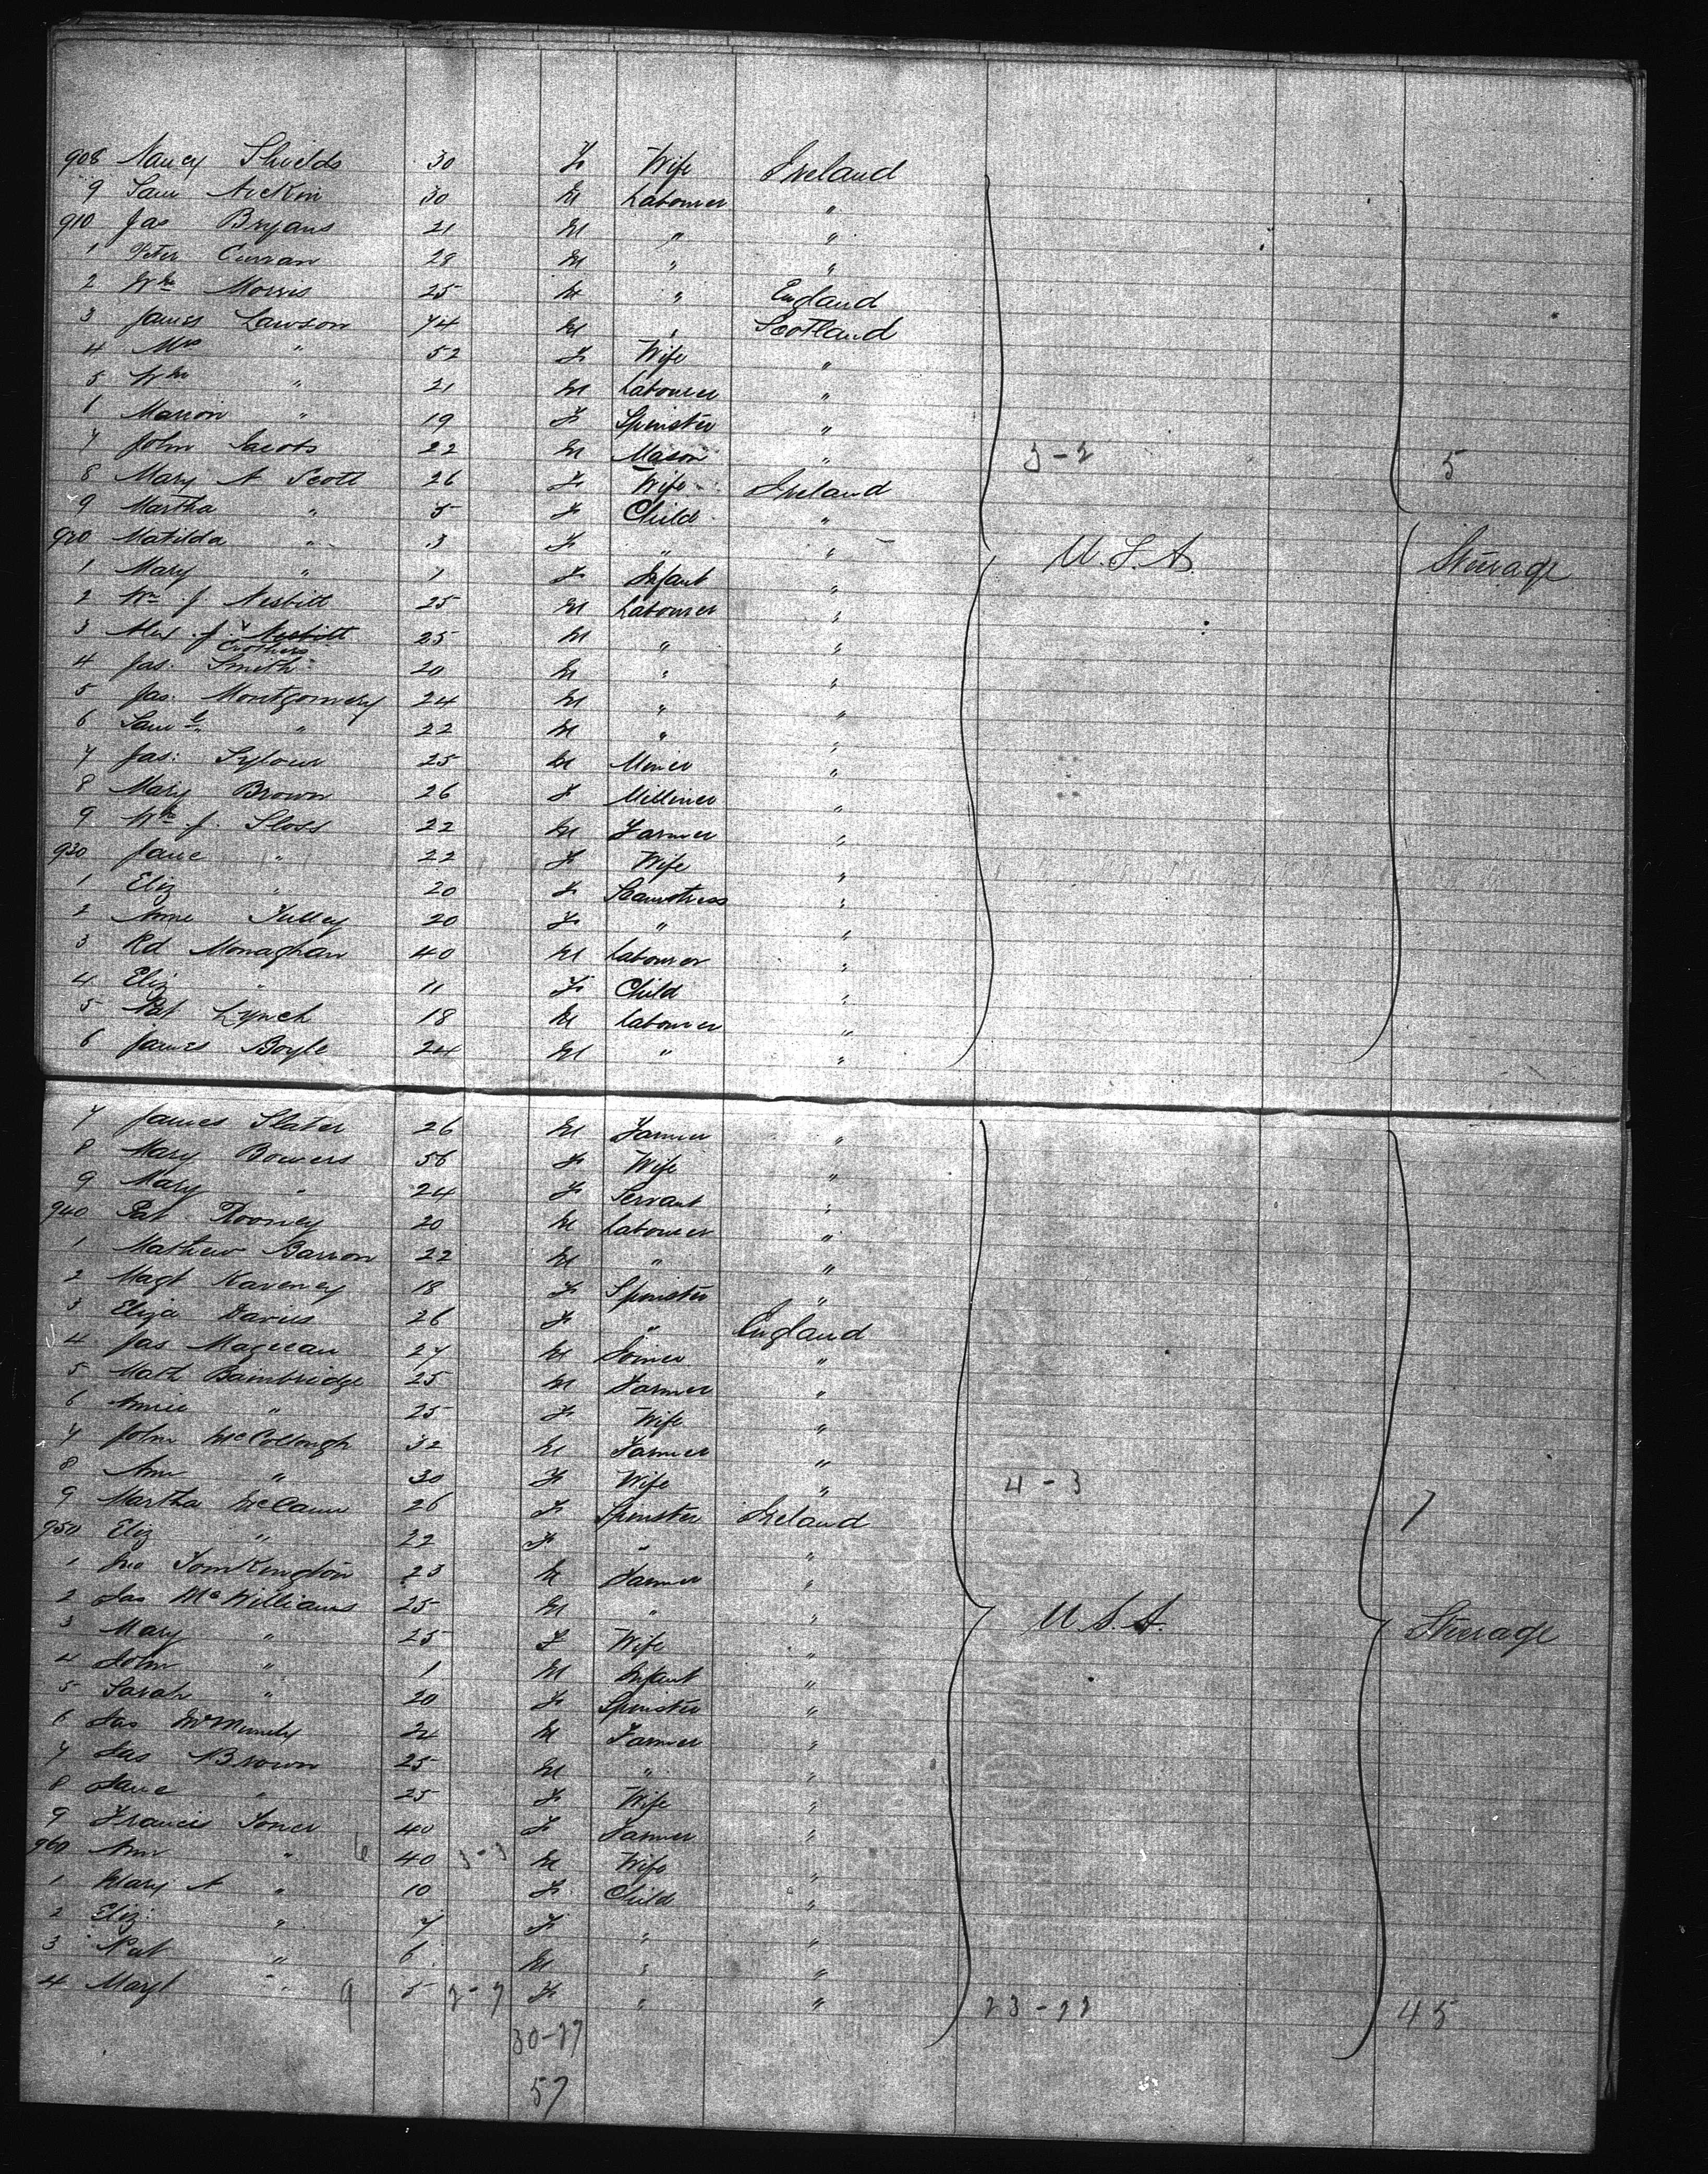 908 Nancy Shields 30 F Wife Ireland
9 Sam 30 M Labourer "
910 Jas Bryans 21 M " "
1 Peter Curran 28 M " "
2 Wm Morris 25 M " England
3 James Lawson 74 M " Scotland
4 Mrs " 52 F Wife "
5 Wm " 21 M Labourer "
6 Marion " 19 F Spinster "
7 John 22 M Mason " 3-2 5
8 Mary A Scott 26 F Wife Ireland
9 Martha " 5 F Child "
920 Matilda " 3 F " " U.S.A. Steerage
1 Mary " 1 F Infant "
2 Wm J Nesbitt 25 M Labourer "
3 Alex J Nesbitt 25 M " "
Crothers
4 Jas: Smith 20 M " "
5 Jas: Montgomery 24 M " "
6 Saml " 22 M " "
7 Jas: 25 M Miner "
8 Mary Brown 26 F Milliner "
9 Wm J. Sloss 22 M Farmer "
930 Jane " 22 F Wife "
1 Eliz " 20 F Seamstress "
2 Anne Tulley 20 F " "
3 Rd Monaghan 40 M Labourer "
4 Eliz " 11 F Child "
5 Pat Lynch 18 M Labourer "
6 James Boyle 24 M " "
7 James Slater 26 M Farmer "
8 Mary Bowers 56 F Wife "
9 Mary " 24 F Servant "
940 Pat Rooney 20 M Labourer "
1 Mathew Barron 22 M " "
2 Magt Kaveney 18 F Spinster "
3 Eliza Davies 26 F " England
4 Jas Magecan 27 M Joiner "
5 Math Bainbridge 25 M Farmer "
6 Annie " 25 F Wife "
7 John McCollough 32 M Farmer "
8 Ann " 30 F Wife " 4-3
9 Martha McCann 26 F Spinster Ireland 7
950 Eliz " 22 F " "
1 Jno Tomkington 23 M Farmer "
2 Jas McWilliams 25 M " " U.S.A. Steerage
3 Mary " 25 F Wife "
4 John " 1 M Infant "
5 Sarah " 20 F Spinster "
6 Jas 24 M Farmer "
7 Jas Brown 25 M " "
8 Jane " 25 F Wife "
9 Francis Toner 40 F Farmer "
960 Ann " 6 40 3-3 M Wife "
1 Mary A " 10 F Child "
2 Eliz: " 7 F " "
3 Pat " 6 M " "
4 Magt " 9 5 2-7 F " " 23-22 45
30-27
57